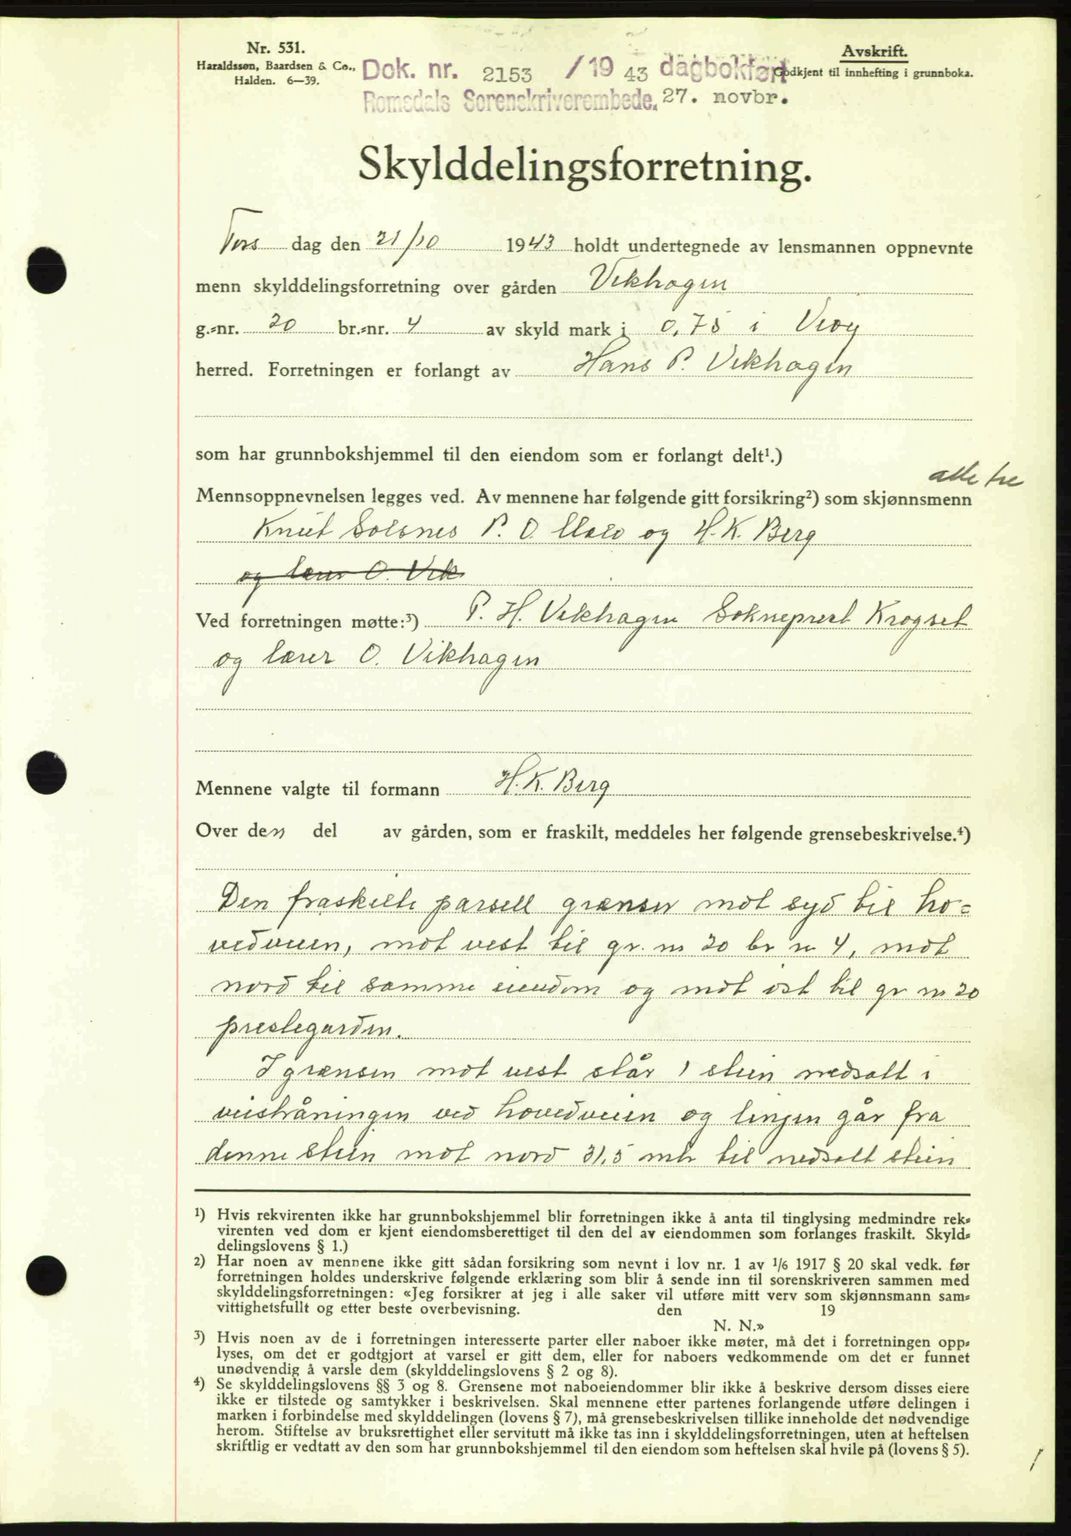 Nr. 531.
Haraldssøn, Baardsen & Co.,
Halden. 6—39.
Dok. nr. 2153 /19 43 dagbokført
Romsdals Sorenskriverembede. 27. novbr.
Avskrift.
Godkjent til innhefting i grunnboka.
Skylddelingsforretning.
Tors dag den 21/10 1943 holdt undertegnede av lensmannen oppnevnte
menn skylddelingsforretning over gården Vikhagen
g.-nr. 20 br.-nr. 4 av skyld mark i 0,75 i Veøy
herred. Forretningen er forlangt av Hans P. Vikhagen
som har grunnbokshjemmel til den eiendom som er forlangt delt¹.)
alle tre
Mennsoppnevnelsen legges ved. Av mennene har følgende gitt forsikring²) som skjønnsmenn
Knut Solsnes P. O. og H. K. Berg
og lærer O. Vik
Ved forretningen møtte:³) P. H. Vikhagen Sokneprest Krogset
og lærer O. Vikhagen
Mennene valgte til formann H. K. Berg
Over den del av gården, som er fraskilt, meddeles her følgende grensebeskrivelse.⁴)
Den fraskilte parsell grænser mot syd til ho=
vedveien, mot vest til gr. nr 20 br nr 4, mot
nord til samme eiendom og mot øst til gr nr 20
prestegarden.
I grænsen mot vest står 1 stein nedsatt i
veiskråningen ved hovedveien og linjen går fra
denne stein mot nord 31,5 mtr til nedsatt stein
¹) Hvis rekvirenten ikke har grunnbokshjemmel blir forretningen ikke å anta til tinglysing medmindre rek-
virenten ved dom er kjent eiendomsberettiget til den del av eiendommen som forlanges fraskilt. Skyld-
delingslovens § 1.)
²) Har noen av mennene ikke gitt sådan forsikring som nevnt i lov nr. 1 av 1/6 1917 § 20 skal vedk. før
forretningen holdes underskrive følgende erklæring som blir å sende inn til sorenskriveren sammen med
skylddelingsforretningen: «Jeg forsikrer at jeg i alle saker vil utføre mitt verv som skjønnsmann sam-
vittighetsfullt og etter beste overbevisning. den 19
N. N.»
³) Hvis noen av de i forretningen interesserte parter eller naboer ikke møter, må det i forretningen opp-
lyses, om det er godtgjort at varsel er gitt dem, eller for naboers vedkommende om det er funnet
unødvendig å varsle dem (skylddelingslovens § 2 og 8).
⁴) Se skylddelingslovens §§ 3 og 8. Grensene mot naboeiendommer blir ikke å beskrive dersom disses eiere
ikke er tilstede og samtykker i beskrivelsen. Skal mennene etter partenes forlangende utføre delingen i
marken i forbindelse med skylddelingen (lovens § 7), må grensebeskrivelsen tillike inneholde det nødvendige
herom. Stiftelse av bruksrettighet eller servitutt må ikke tas inn i skylddelingsforretningen, uten at heftelsen
skriftlig er vedtatt av den som har grunnbokshjemmel til den eiendom som heftelsen skal hvile på (lovens § 5).